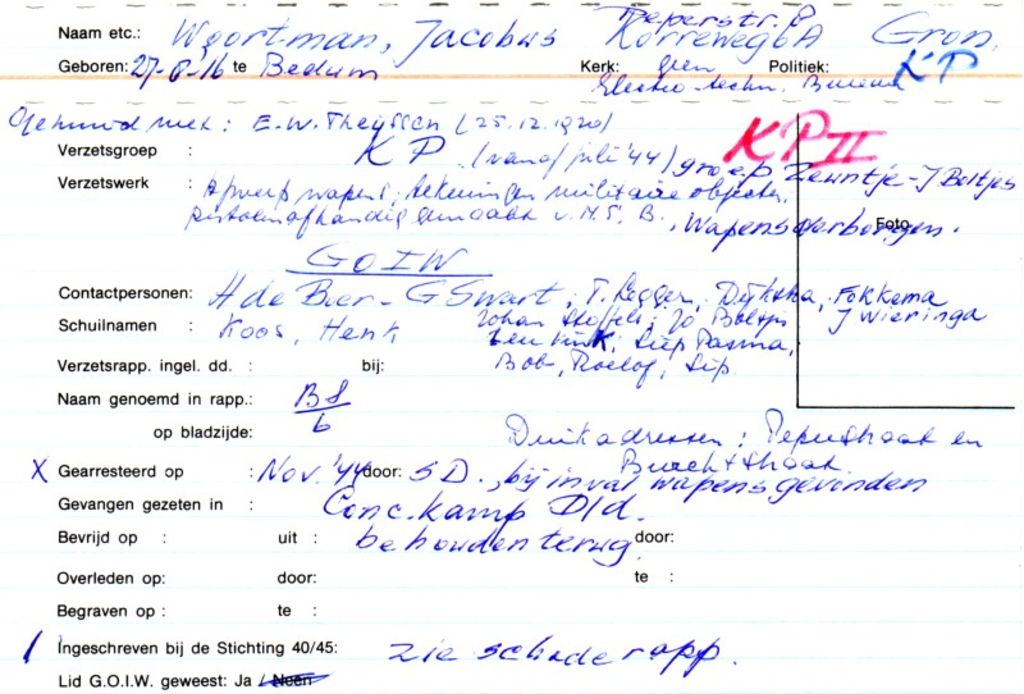 Peperstr. 8
Naam etc.: Woortman, Jacobus Korreweg 6A Gron.
Geboren: 27-8-'16 te Bedum Kerk: geen Politiek: KP
Electro-techn. Bureau
Gehuwd met: E.W. Theyssen (25.12.1920) KP II
Verzetsgroep : KP (vanaf juli '44) groep Zewntje - J Boltjes
Verzetswerk : Afwerp wapens, tekeningen militaire objecten,
pistolen afhandig gemaakt v. M.S. B., Wapens verborgen.
Foto
GOIW
Contactpersonen: H de Boer - G Swart, T. Regger, Dijkstra, Fokkema
Schuilnamen : Koos, Henk Johan Stoffels; Jo Boltjes J Wieringa
Siep Pasma,
Verzetsrapp. ingel. dd. : bij: Bob, Roelof, Siep
Naam genoemd in rapp.: BS
op bladzijde: 6
Duikadressen: Peperstraat en
Burchtstraat
X Gearresteerd op : Nov. '44 door: SD., bij inval wapens gevonden
Gevangen gezeten in : Conc. kamp Dld.
Bevrijd op : uit : behouden terug door:
Overleden op: door: te :
Begraven op : te :
/ Ingeschreven bij de Stichting 40/45: zie schaderapp.
Lid G.O.I.W. geweest: Ja / Neen